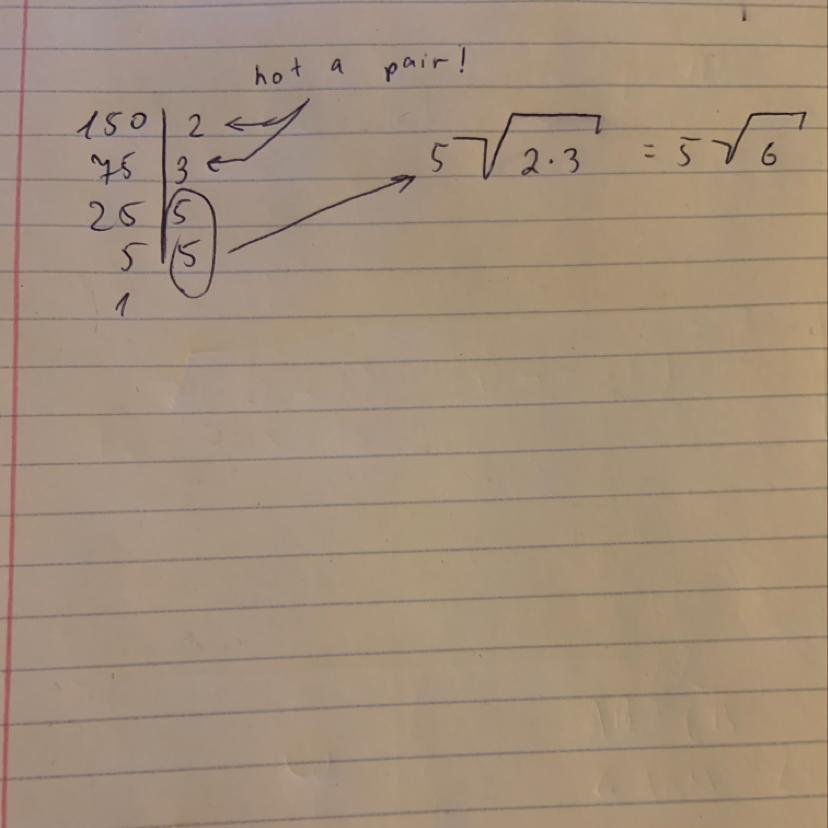 not a pair!
150 | 2
75 | 3
25 | 5
5 | 5
1
5√2·3 = 5√6